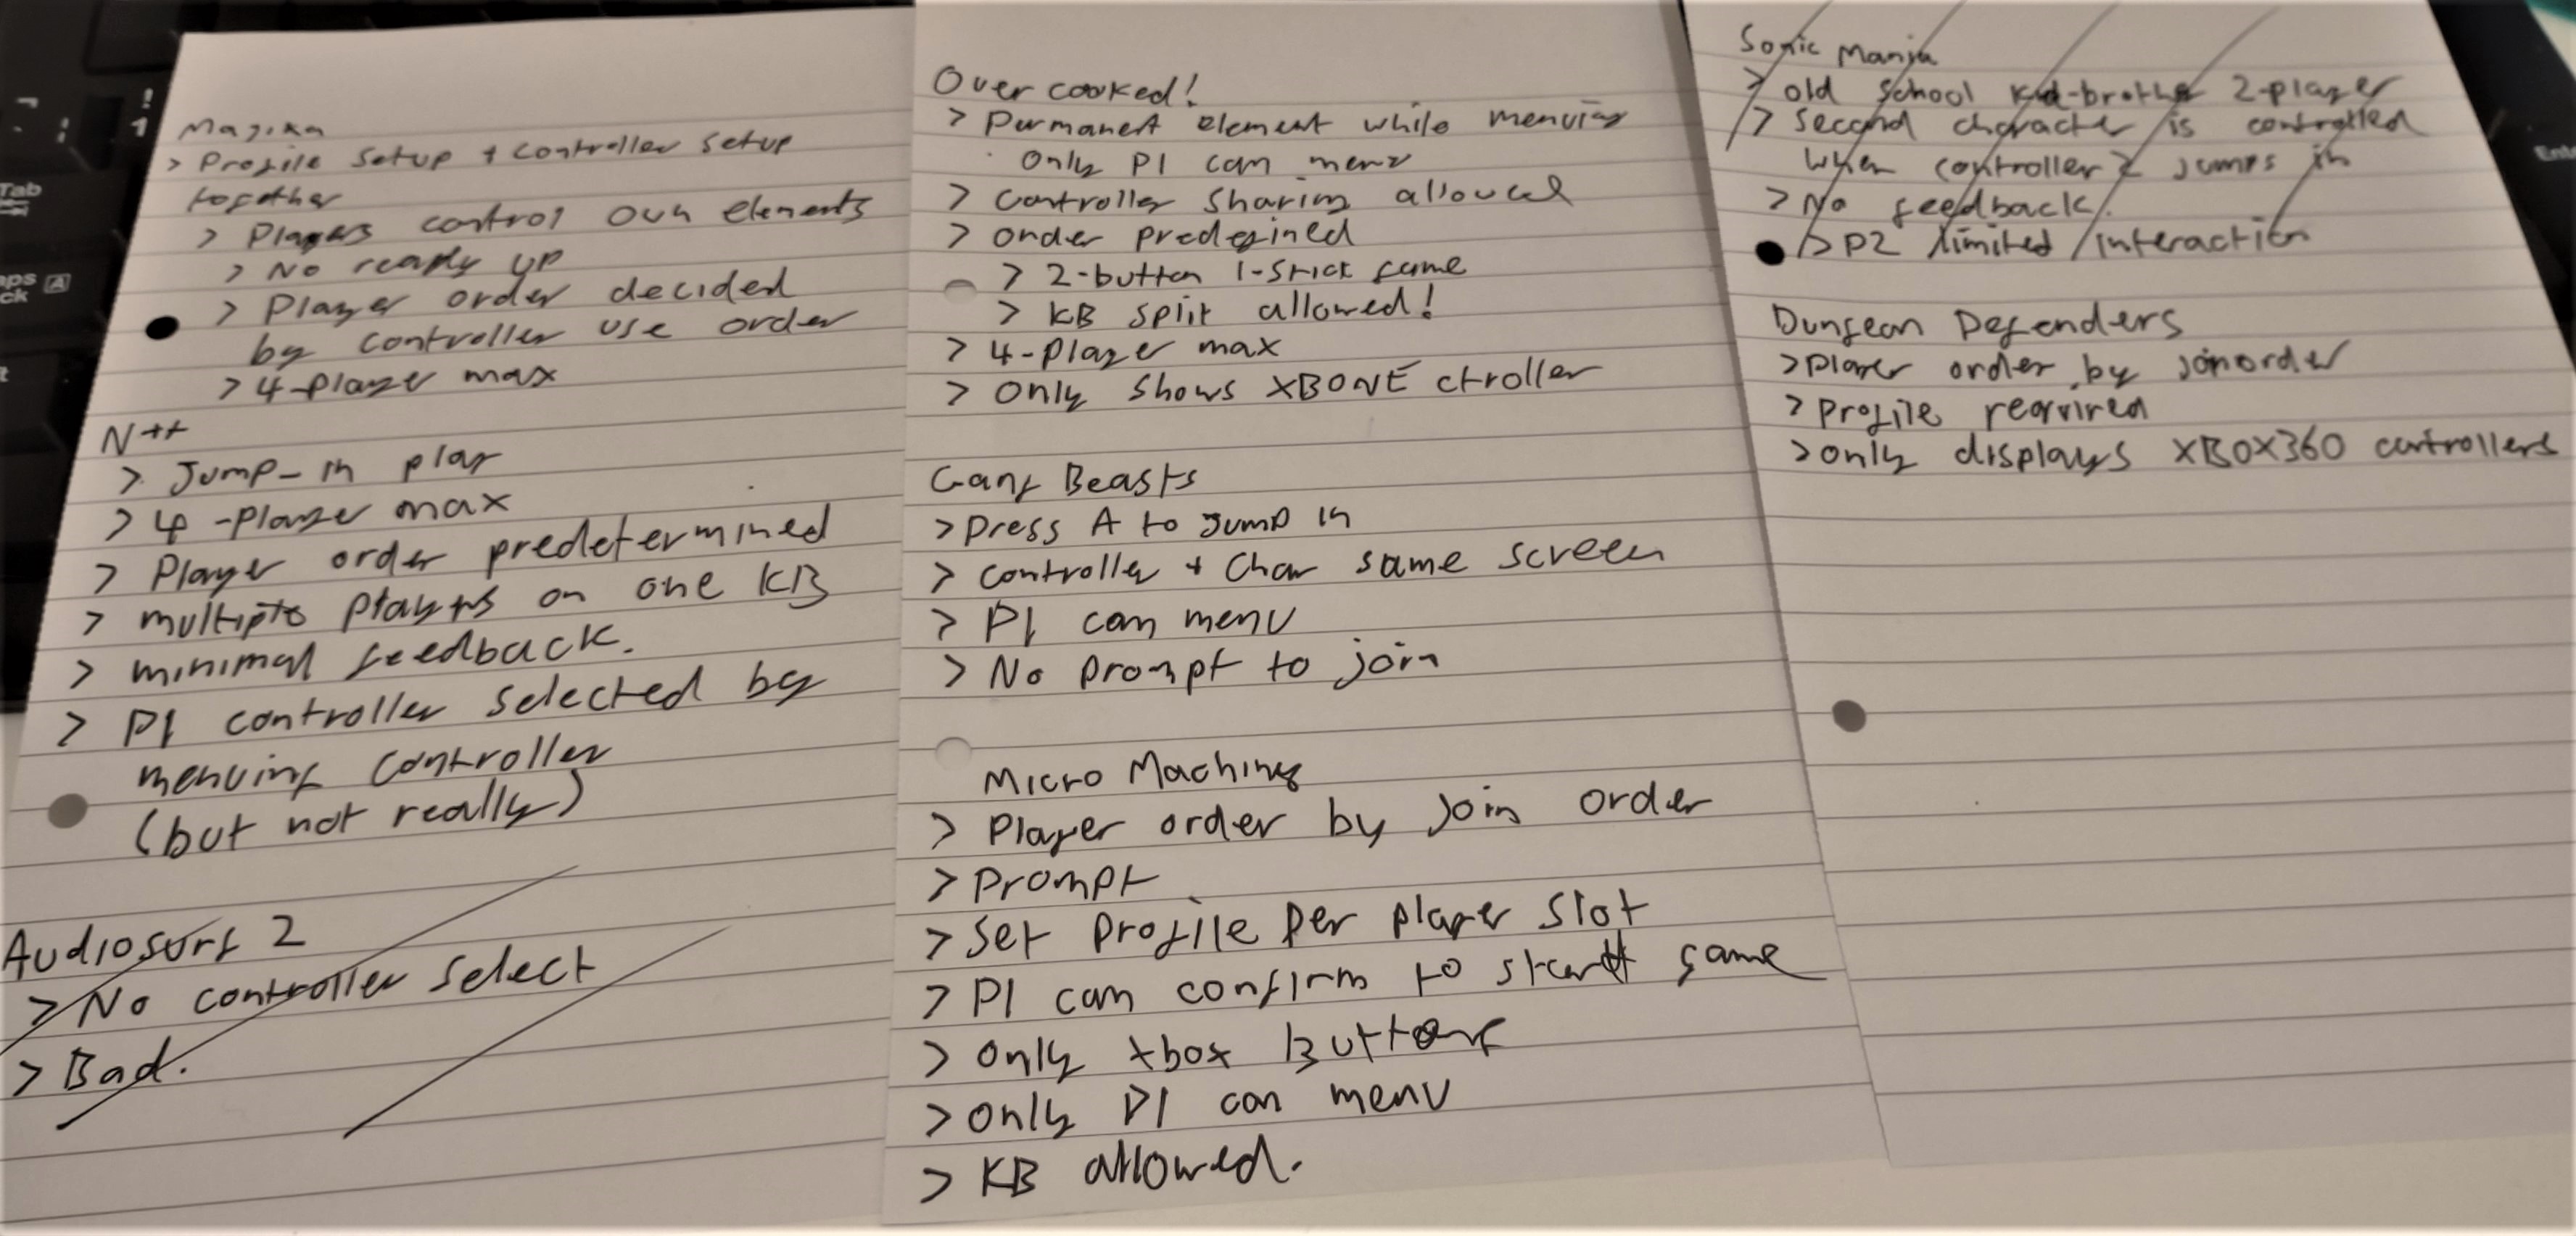 Magika
> Profile setup + controller setup
together
> Players control own elements
> No ready up
> Player order decided
by controller use order
> 4-player max
N++
> Jump-in play
> 4-player max
> Player order predetermined
> multiple players on one KB
> minimal feedback.
> P1 controller selected by
menuing controller
(but not really)
Audiosurf 2
> No controller select
> Bad.
Overcooked!
> Permanent element while menuing
only P1 can menu
> Controller sharing allowed
> order predefined
> 2-button 1-stick game
> KB split allowed!
> 4-player max
> only shows XBONE ctroller
Gang Beasts
> Press A to jump in
> controller + Char same screen
> P1 can menu
> No prompt to join
Micro Machines
> Player order by join order
> Prompt
> Set profile per player slot
> P1 can confirm to start game
> only xbox Buttons
> only P1 can menu
> KB allowed.
Sonic Mania
> old school kid-brother 2-player
> Second character is controlled
when controller 2 jumps in
> No feedback.
> P2 limited interaction
Dungeon Defenders
> player order by joinorder
> profile required
> only displays XBOX360 controllers
Tab
Ent